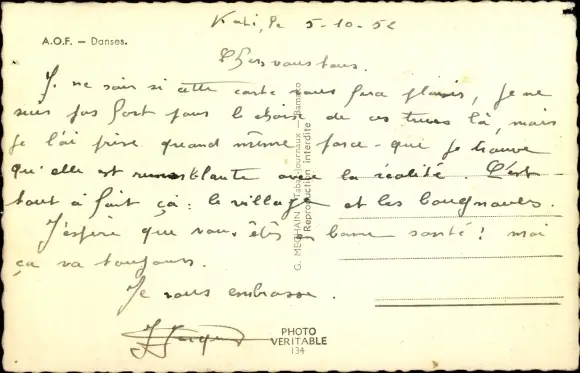 Kati, le 5-10-52
A.O.F. – Danses.
Chers vous tous.
Je ne sais si cette carte vous fera plaisir, je ne
suis pas fort pour le choix de ces trucs là, mais
je l'ai prise quand même parce-que je trouve
qu'elle est ressemblante avec la réalité. C'est
tout à fait ça : le village et les bougnoules.
J'espère que vous êtes en bonne santé ! moi
ça va toujours.
Je vous embrasse.
G. MECHAIN Tabac-Journaux — Bamako
Reproduction interdite
PHOTO
VERITABLE
134